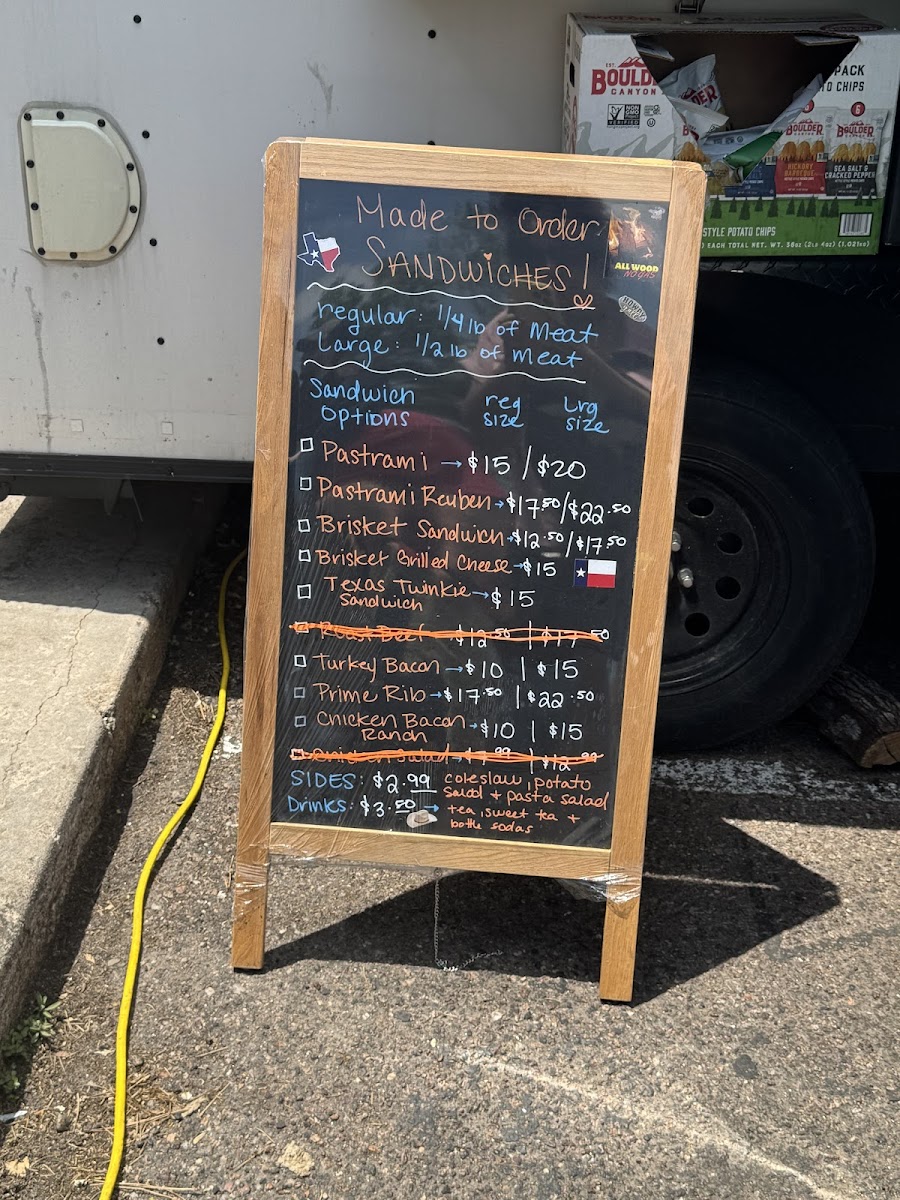 EST.
BOULD
CANYON
NON
GMO
VERIFIED
PACK
TO CHIPS
BOULDER
BOULDER
HICKORY
BARBEQUE
SEA SALT &
CRACKED PEPPER
STYLE POTATO CHIPS
EACH TOTAL NET. WT. 36oz (2LB 4oz) (1.02kg)
Made to Order
SANDWICHES!
ALL WOOD
NO GAS
regular: 1/4 lb of Meat
Large: 1/2 lb of Meat
Sandwich options reg size Lrg size
Pastrami → $15 / $20
Pastrami Reuben → $17.50/$22.50
Brisket Sandwich → $12.50/$17.50
Brisket Grilled Cheese → $15
Texas Twinkie Sandwich → $15
Roast Beef → $12.50 | $17.50
Turkey Bacon → $10 | $15
Prime Rib → $17.50 | $22.50
Chicken Bacon Ranch → $10 | $15
SIDES: $2.99 coleslaw, potato salad + pasta salad
Drinks: $3.50 → tea, sweet tea + bottle sodas